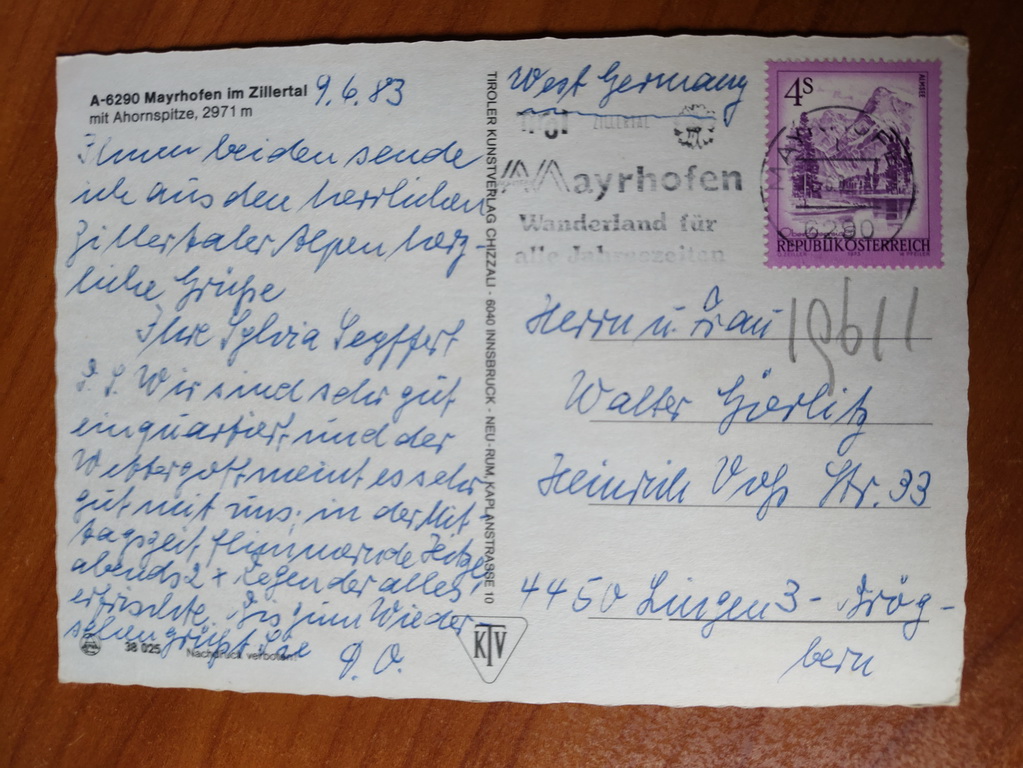 A-6290 Mayrhofen im Zillertal
mit Ahornspitze, 2971 m
9.6.83
Ihnen beiden sende
ich aus den herrlichen
Zillertaler Alpen herz-
liche Grüße
Ihre Sylvia Seyffert
P.S. Wir sind sehr gut
einquartiert, und der
Wettergott meint es sehr
gut mit uns; in der Mit
tagszeit flimmernde Hitze,
abends 2 x Regen der alles
erfrischte. Bis zum Wieder-
sehen grüßt Sie
D.O.
38 025
Nachdruck verboten!
TIROLER KUNSTVERLAG CHIZZALI - 6040 INNSBRUCK - NEU-RUM, KAPLANSTRASSE 10
KTV
West Germany
Tirol ZILLERTAL
Mayrhofen
Wanderland für
alle Jahreszeiten
6290
4S
ALMSEE
REPUBLIK ÖSTERREICH
Herrn u. Frau
Walter Görlitz
Heinrich Voß Str. 33
4450 Lingen 3 - Brög-
bern